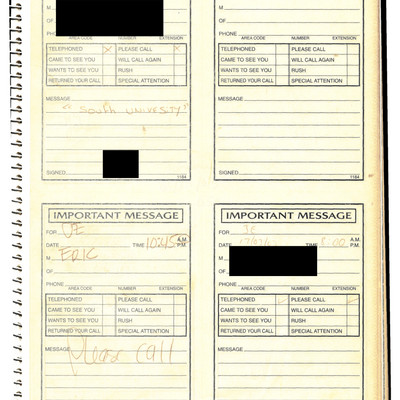 M
OF
PHONE
AREA CODE NUMBER EXTENSION
TELEPHONED X PLEASE CALL X
CAME TO SEE YOU WILL CALL AGAIN
WANTS TO SEE YOU RUSH
RETURNED YOUR CALL SPECIAL ATTENTION
MESSAGE
"SOUTH UNIVERSITY"
SIGNED 1184
M
OF
PHONE
AREA CODE NUMBER EXTENSION
TELEPHONED PLEASE CALL
CAME TO SEE YOU WILL CALL AGAIN
WANTS TO SEE YOU RUSH
RETURNED YOUR CALL SPECIAL ATTENTION
MESSAGE
SIGNED 1184
IMPORTANT MESSAGE
FOR JE
DATE TIME 10:45 A.M. P.M.
M ERIC
OF
PHONE
AREA CODE NUMBER EXTENSION
TELEPHONED PLEASE CALL
CAME TO SEE YOU WILL CALL AGAIN
WANTS TO SEE YOU RUSH
RETURNED YOUR CALL SPECIAL ATTENTION
MESSAGE Please call
IMPORTANT MESSAGE
FOR JE
DATE TIME 8:00 A.M. P.M.
M
OF
PHONE
AREA CODE NUMBER EXTENSION
TELEPHONED PLEASE CALL
CAME TO SEE YOU WILL CALL AGAIN
WANTS TO SEE YOU RUSH
RETURNED YOUR CALL SPECIAL ATTENTION
MESSAGE